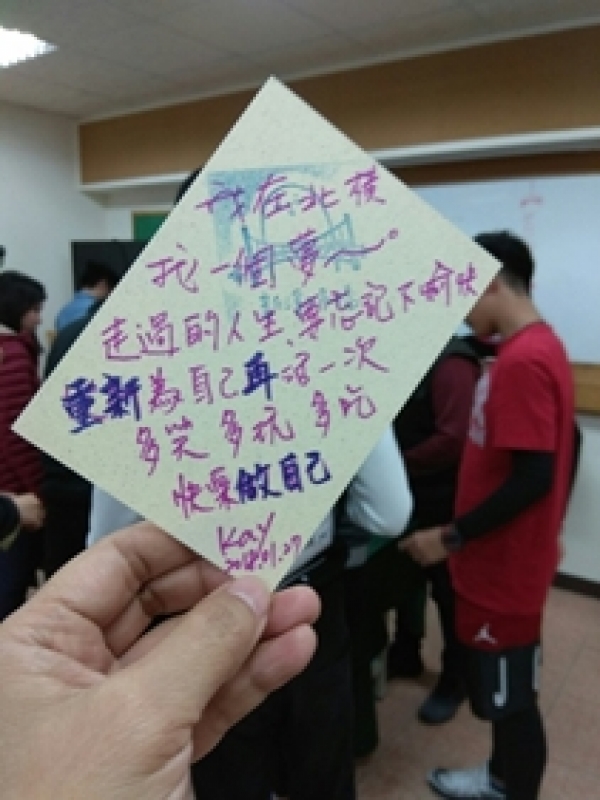 我在北橫
找一個夢～。
走過的人生、要忘記不愉快
重新為自己再活一次
多笑 多玩 多吃
快樂做自己
Kay
2018.01.27
J